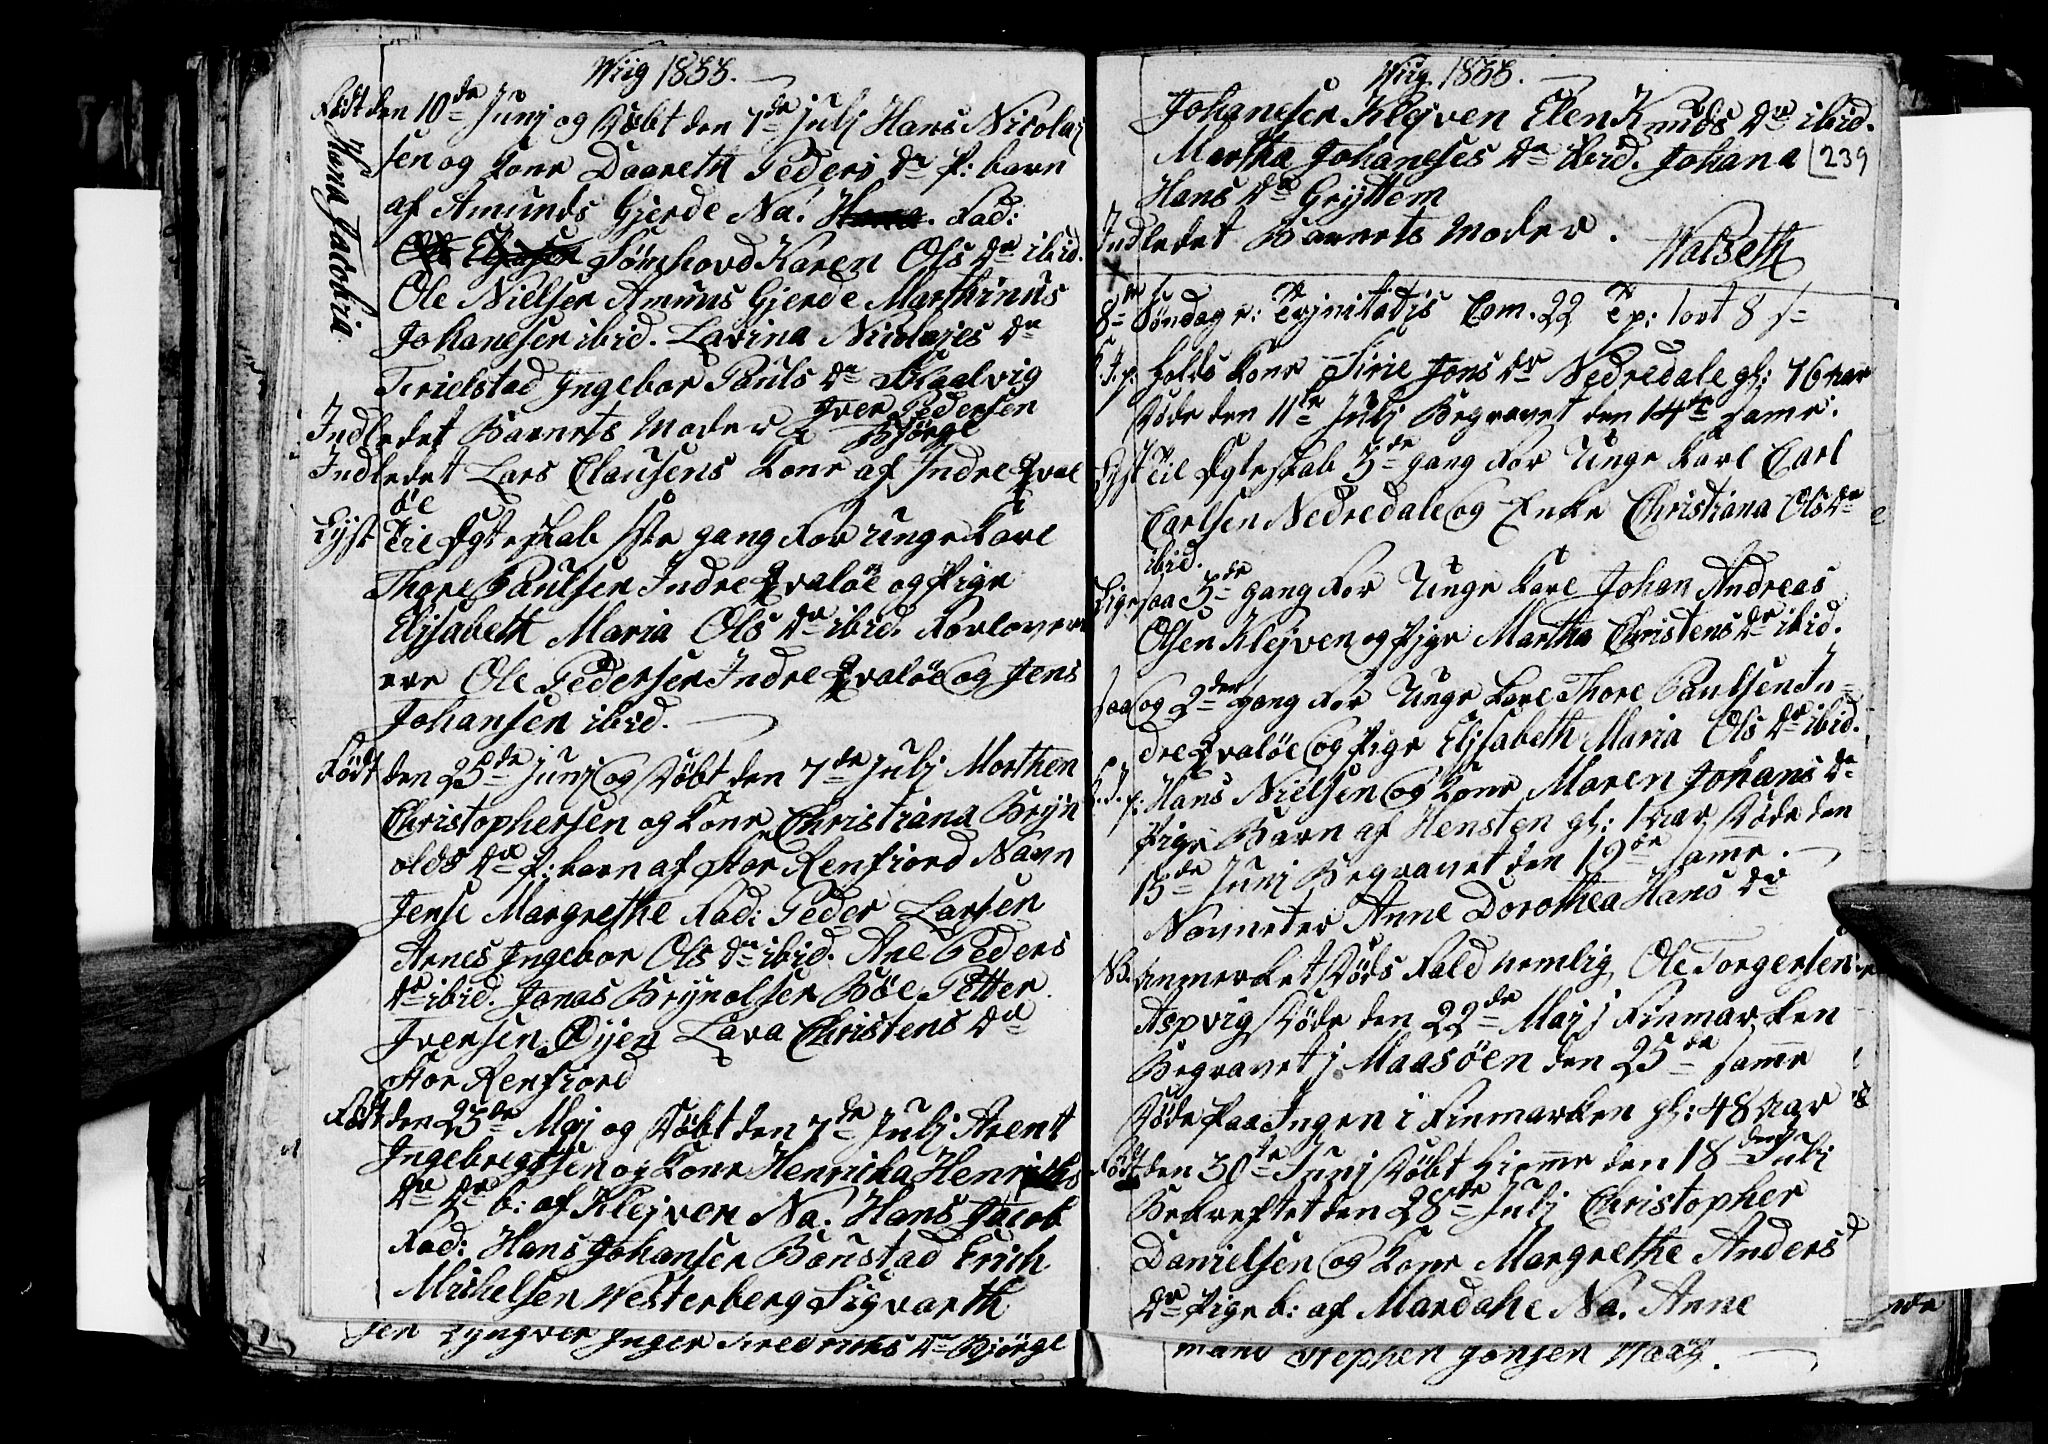 Wiig 1833.
Født den 10de Junj og Døbt den 7de Julj Hans Nicolaj
sen og Kone Daareth Peders Dr P: barn
af Amunds Gjerde Na. Fad:
Sømhovd Karen Ols Dr ibid.
Ole Nielsen Amuns Gjerde Marthinus
Johanesen ibid. Lavina Nicolajes Dr
Ingebor Pauls Dr Skaalvig
Iver Pedersen
Indledet Barnets Moder Bjørge
Indledet Lars Clausens Kone af Indre Qval
øe
Lyst Til Egteskab 1ste gang for unge Karl
Thore Paulsen Indre Qvaløe og Pige
Elisabeth Maria Ols Dr ibid. Forlover
ere Ole Pedersen Indre Qvaløe og Jens
Johansen ibid.
Født den 25de Junj og Døbt den 7de Julj Morthen
Christophersen og Kone Christiana Bryn
olds Dr P: barn af Stor Renfiord Navn
Jense Margrethe Fad: Peder Larsen
Arnes Ingebor Ols Dr ibid. Ane Peders
Dr ibid. Jonas Brynolsen Bøe Petter
Iversen Øyen Lava Christens Dr
Stor Renfiord
Født den 23de Maj og Døbt den 7de Julj Arent
Ingebregtsen og Kone Henrika Henriks
Dr Dr b: af Klejven Na. Hans Jacob
Fad: Hans Johansen Baustad Erich
Michelsen Westerberg Sigvarth
sen Lyngver Inger Fredriks Dr Bjørge
Hana Jacobia
Wiig 1833.
Johanesen Klejven Elen Knuds Dr ibid.
Martha Johaneses Dr ibid. Johana
239
Hans Dr Gryttem
Indledet Barnets Moder.
Walseth
8de Søndag e: Trjnitatis Com. 22 Tp: 1 ort 8 s
J. p. Holds Kone Sirie Jons Dr Nedredale gl: 76 aar
Døde den 11te Julj Begravet den 14de same.
Lyst Til Egteskab 3de gang for Unge Karl Carl
Carlsen Nedredale og Enke Christiana Ols Dr
ibid.
Ligesaa 3de gang for Unge Karl Johan Andreas
Olsen Klejven og Pige Martha Christens Dr ibid.
saa og 2den gang for Unge Karl Thore Paulsen In-
dre Qvaløe og Pige Elisabeth Maria Ols Dr ibid.
J. p: Hans Nielsen og Kone Maren Johans Dr
Pige Barn af Hensten gl: 1 aar Døde den
15de Junj Begravet den 19de same.
Navneter Anne Dorothea Hans Dr
NB. anmerket Døds Fald nemlig Ole Torgersen
Aspvig Døde den 22de Maj j Finmarken
Begravet j Maasøen den 25de same
Døde Paa Ingen i Finmarken gl: 48 aar
Født den 30te Junj Døbt Hiemme den 18den Julj
Bekreftet den 28de Julj Christopher
Danielsen og Kone Margrethe Anders
Dr Pige b: af Mardahe Na. Anne
Stephen Jonsen Waag.